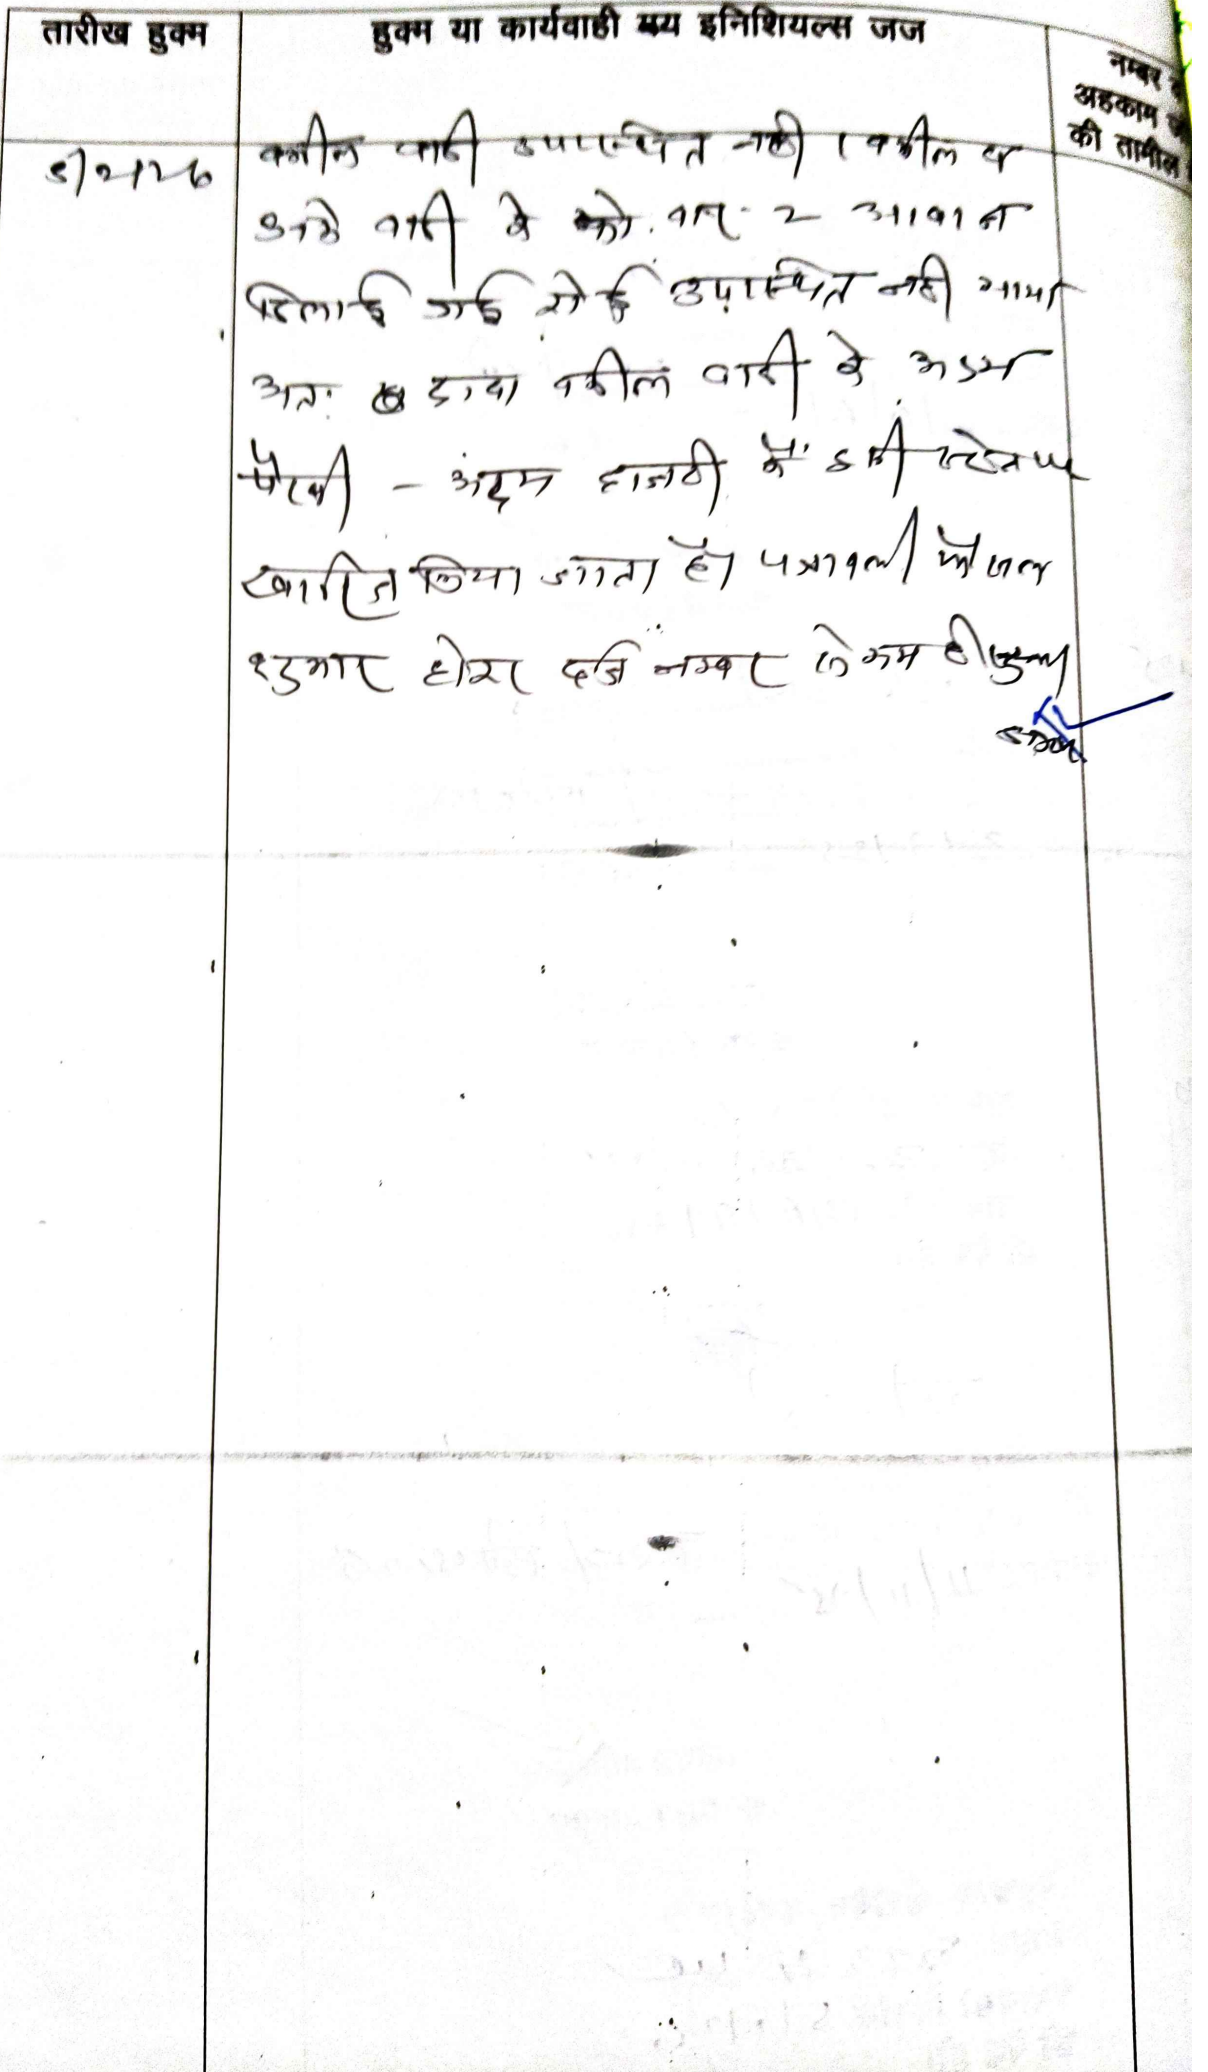 तारीख हुक्म
हुक्म या कार्यवाही मय इनिशियल्स जज
नम्बर
अहकाम
की तामील
वकील वादी उपस्थित नही । वकील व
वादी के को बार-2 आवाज
दिलाई गई कोई उपस्थित नही आया
अतः दावा वकील वादी के अदम
पैरवी - अदम हाजरी में इसी स्टेज पर
खारिज किया जाता है। पत्रावली फैसल
शुमार होकर दर्ज नम्बर से कम हो